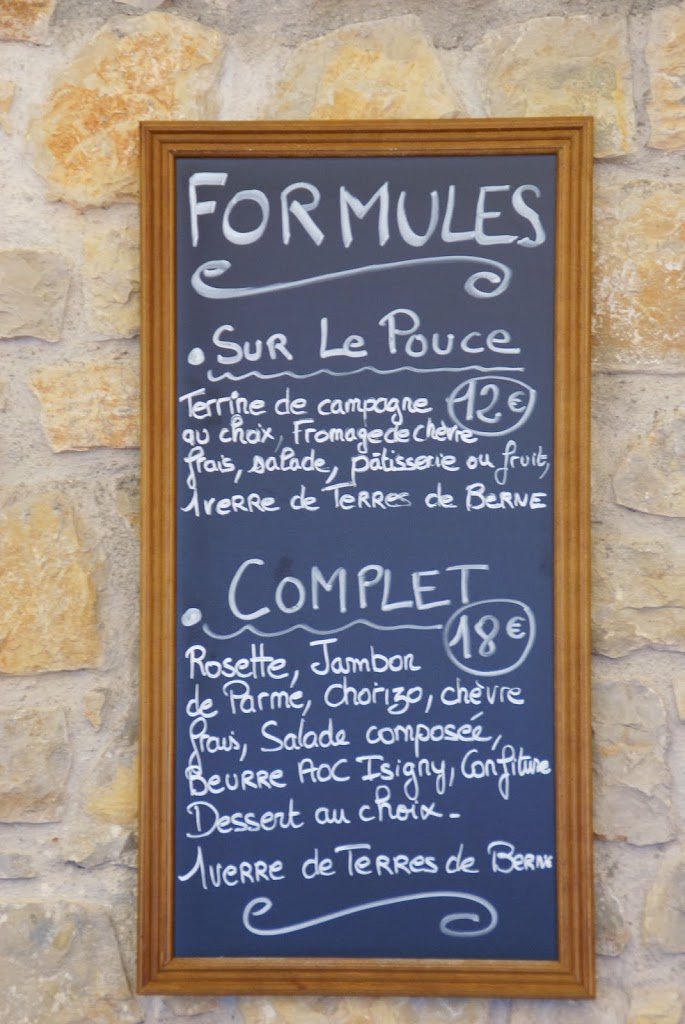 FORMULES
• SUR Le POUCE
Terrine de campagne 12€
au choix, Fromage de chèvre
frais, salade, pâtisserie ou fruit,
1 verre de Terres de Berne
• COMPLET
18€
Rosette, Jambon
de Parme, Chorizo, chèvre
frais, Salade composée,
Beurre AOC Isigny, Confiture
Dessert au choix -
1 verre de Terres de Berne